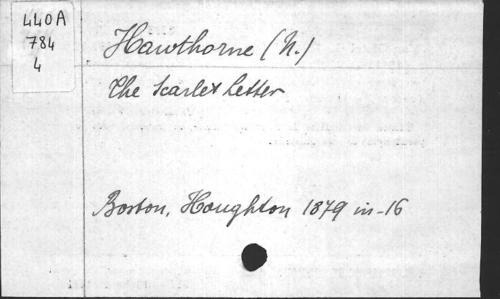 440A
784
4
Hawthorne (N.)
The Scarlet Letter
Boston, Houghton 1879 in-16